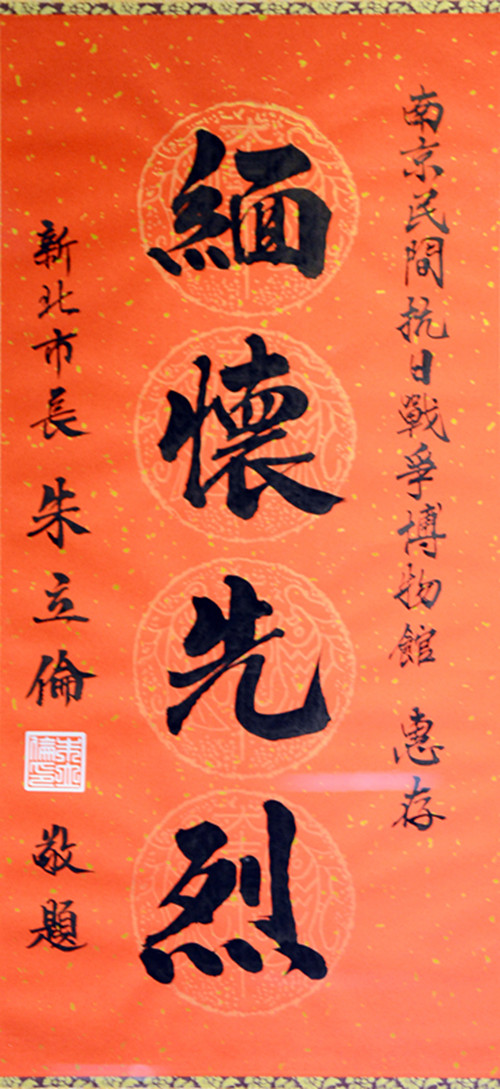 南京民間抗日戰爭博物館 惠存
緬懷先烈
新北市長 朱立倫 敬題
朱立倫印